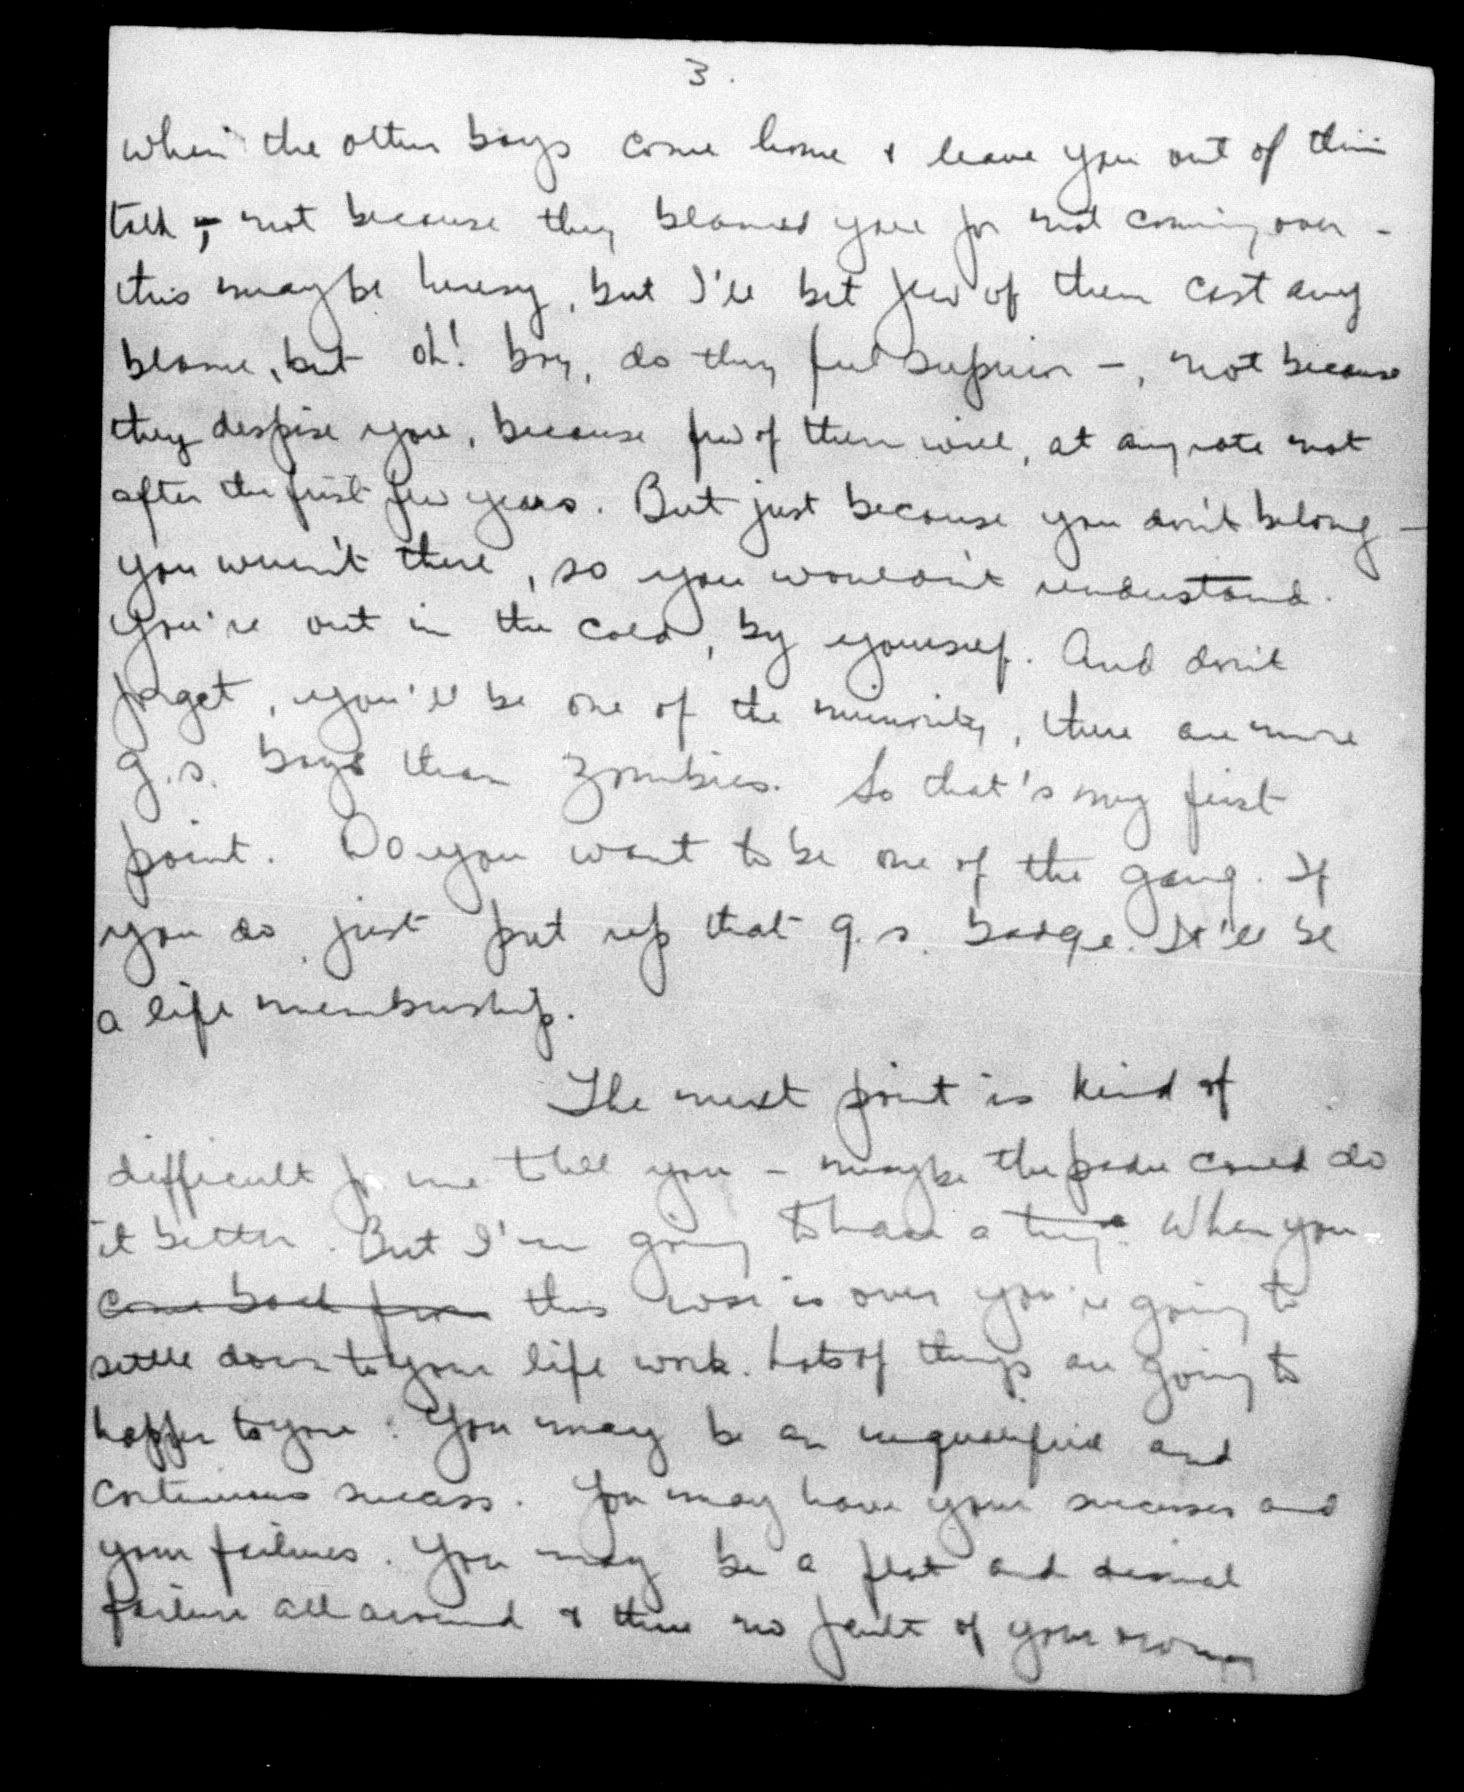 3.
when the other boys come home & leave you out of their
talk, - not because they blamed you for not coming over -
this may be heresy, but I'll bet few of them cast any
blame, but oh! boy, do they feel superior -, not because
they despise you, because few of them will, at any rate not
after the first few years. But just because you don't belong -
you weren't there, so you wouldn't understand.
You're out in the cold, by yourself. And don't
forget, you'll be one of the minority, there are more
g.s. boys than zombies. So that's my first
point. Do you want to be one of the gang. If
you do just put up that g.s. badge. It'll be
a life membership.
The next point is kind of
difficult for me t tell you - maybe the padre could do
it better. But I'm going to have a try. When you
come back from this war is over you're going to
settle down to your life work. Lots of things are going to
happen to you. You may be an unqualified and
continuous success. You may have your successes and
your failures. You may be a flat and dismal
failure all around & thru no fault of your own